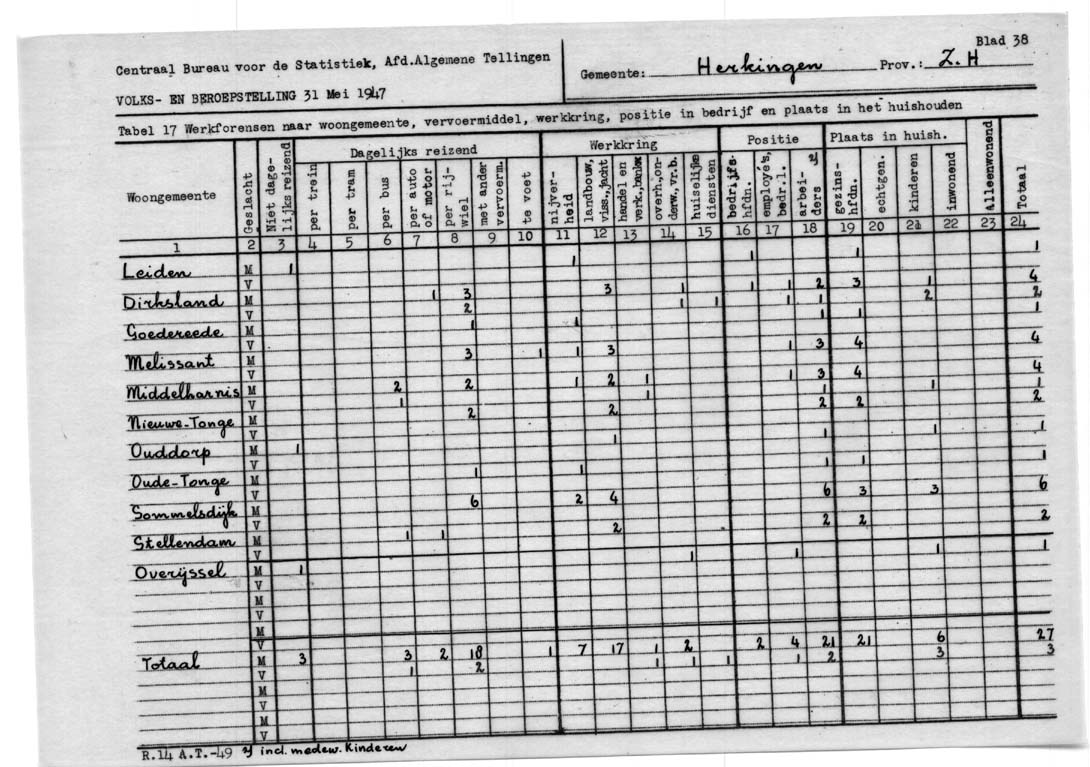 Blad 38
Centraal Bureau voor de Statistiek, Afd.Algemene Tellingen
Gemeente: Herkingen Prov.: Z.H
VOLKS- EN BEROEPSTELLING 31 Mei 1947
Tabel 17 Werkforensen naar woongemeente, vervoermiddel, werkkring, positie in bedrijf en plaats in het huishouden
Woongemeente
Geslacht
Niet dage-
lijks reizend
Dagelijks reizend
per trein
per tram
per bus
per auto
of motor
per rij-
wiel
met ander
vervoerm.
te voet
Werkkring
nijver-
heid
landbouw,
viss., jacht
handel en
verk., bankw
overh., on-
derw., vr.b.
huiselijke
diensten
Positie
bedrijfs-
hfdn.
employé's,
bedr.l.
arbei- 1)
ders
Plaats in huish.
gezins-
hfdn.
echtgen.
kinderen
inwonend
Alleenwonend
Totaal
1 2 3 4 5 6 7 8 9 10 11 12 13 14 15 16 17 18 19 20 21 22 23 24
Leiden M 1 1 1 1 1
V
Dirksland M 1 3 3 1 1 1 2 3 1 4
V 2 1 1 1 1 2 2
Goedereede M 1 1 1 1 1
V
Melissant M 3 1 1 3 1 3 4 4
V
Middelharnis M 2 2 1 2 1 1 3 4 4
V 1 1 1 1 1
Nieuwe-Tonge M 2 2 2 2 2
V
Ouddorp M 1 1 1 1 1
V
Oude-Tonge M 1 1 1 1 1
V
Sommelsdijk M 6 2 4 6 3 3 6
V
Stellendam M 1 1 2 2 2 2
V
Overijssel M 1 1 1 1 1
V
M
V
M
V
Totaal M 3 3 2 18 1 7 17 1 2 2 4 21 21 6 27
V 1 2 1 1 1 1 2 3 3
M
V
M
V
R.14 A.T.-49 1) incl. medew. Kinderen